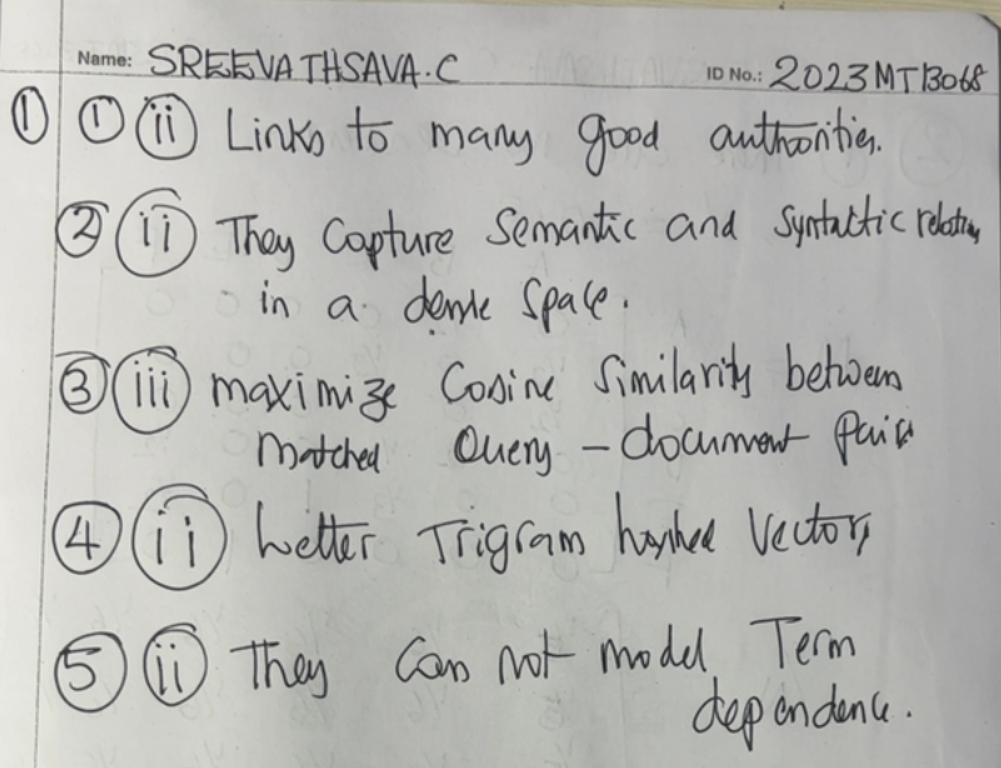 Name: SREEVATHSAVA.C ID No.: 2023MT13068
① ① ⓘⓘ Links to many good authorities.
② ii They Capture Semantic and Syntactic relations
in a dense space.
③ iii maximize Cosine Similarity between
matched Query - document pairs
④ ii Letter Trigram hashed Vectors
⑤ ii They Can not model Term
dependence.